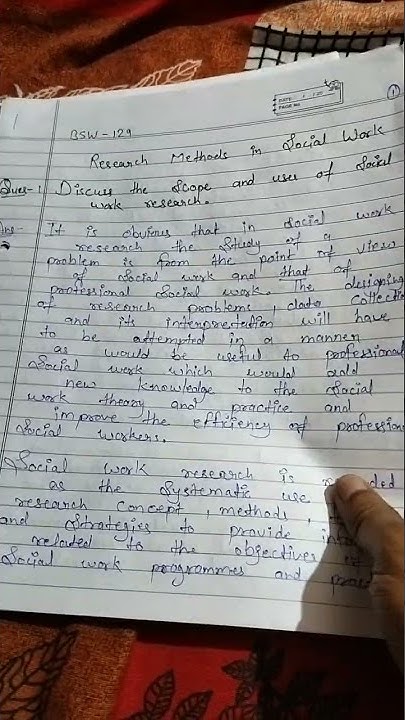 1
DATE
PAGE NO.
BSW-129
Research Methods in Social Work
Ques-1 Discuss the scope and uses of Social
work research.
Ans- It is obvious that in social work
research the study of a
problem is from the point of view
of Social work and that of
professional Social work. The designing
of research problems, data collectio
and its interpretation will have
to be attempted in a manner
as would be useful to professional
Social work which would add
new knowledge to the Social
work theory and practice and
improve the efficiency of profession
Social workers.
Social work research is
as the systematic use
research concept, methods,
and strategies to provide
related to the objectives
Social work programmes and